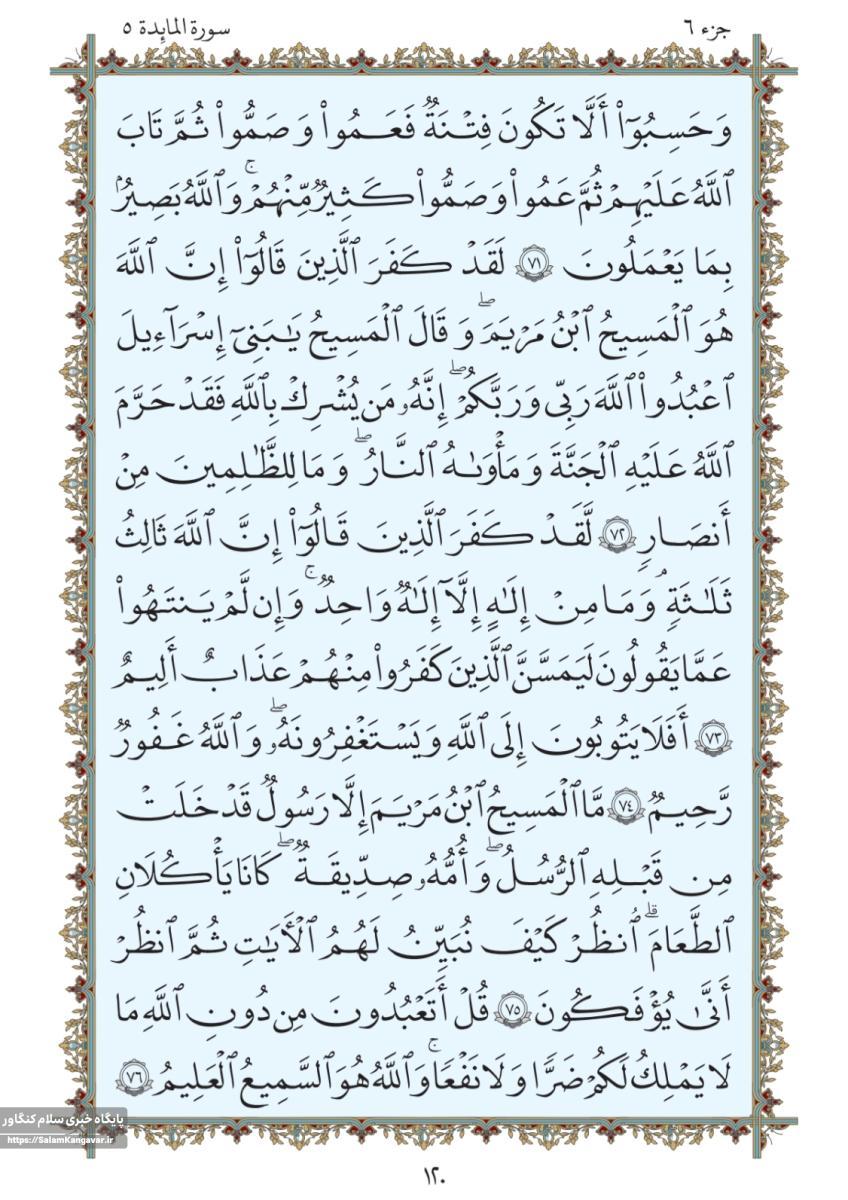 جزء ٦
سورة المائدة ٥
وَحَسِبُوٓا۟ أَلَّا تَكُونَ فِتْنَةٌ فَعَمُوا۟ وَصَمُّوا۟ ثُمَّ تَابَ
ٱللَّهُ عَلَيْهِمْ ثُمَّ عَمُوا۟ وَصَمُّوا۟ كَثِيرٌ مِّنْهُمْ ۚ وَٱللَّهُ بَصِيرٌۢ
بِمَا يَعْمَلُونَ ﴿٧١﴾ لَقَدْ كَفَرَ ٱلَّذِينَ قَالُوٓا۟ إِنَّ ٱللَّهَ
هُوَ ٱلْمَسِيحُ ٱبْنُ مَرْيَمَ ۖ وَقَالَ ٱلْمَسِيحُ يَـٰبَنِىٓ إِسْرَآءِيلَ
ٱعْبُدُوا۟ ٱللَّهَ رَبِّى وَرَبَّكُمْ ۖ إِنَّهُۥ مَن يُشْرِكْ بِٱللَّهِ فَقَدْ حَرَّمَ
ٱللَّهُ عَلَيْهِ ٱلْجَنَّةَ وَمَأْوَىٰهُ ٱلنَّارُ ۖ وَمَا لِلظَّـٰلِمِينَ مِنْ
أَنصَارٍ ﴿٧٢﴾ لَّقَدْ كَفَرَ ٱلَّذِينَ قَالُوٓا۟ إِنَّ ٱللَّهَ ثَالِثُ
ثَلَـٰثَةٍ ۘ وَمَا مِنْ إِلَـٰهٍ إِلَّآ إِلَـٰهٌ وَٰحِدٌ ۚ وَإِن لَّمْ يَنتَهُوا۟
عَمَّا يَقُولُونَ لَيَمَسَّنَّ ٱلَّذِينَ كَفَرُوا۟ مِنْهُمْ عَذَابٌ أَلِيمٌ
﴿٧٣﴾ أَفَلَا يَتُوبُونَ إِلَى ٱللَّهِ وَيَسْتَغْفِرُونَهُۥ ۖ وَٱللَّهُ غَفُورٌ
رَّحِيمٌ ﴿٧٤﴾ مَّا ٱلْمَسِيحُ ٱبْنُ مَرْيَمَ إِلَّا رَسُولٌ قَدْ خَلَتْ
مِن قَبْلِهِ ٱلرُّسُلُ ۖ وَأُمُّهُۥ صِدِّيقَةٌ ۖ كَانَا يَأْكُلَانِ
ٱلطَّعَامَ ۗ ٱنظُرْ كَيْفَ نُبَيِّنُ لَهُمُ ٱلْـَٔايَـٰتِ ثُمَّ ٱنظُرْ
أَنَّىٰ يُؤْفَكُونَ ﴿٧٥﴾ قُلْ أَتَعْبُدُونَ مِن دُونِ ٱللَّهِ مَا
لَا يَمْلِكُ لَكُمْ ضَرًّا وَلَا نَفْعًا ۚ وَٱللَّهُ هُوَ ٱلسَّمِيعُ ٱلْعَلِيمُ ﴿٧٦﴾
پایگاه خبری سلام کنگاور
https://SalamKangavar.ir
١٢٠